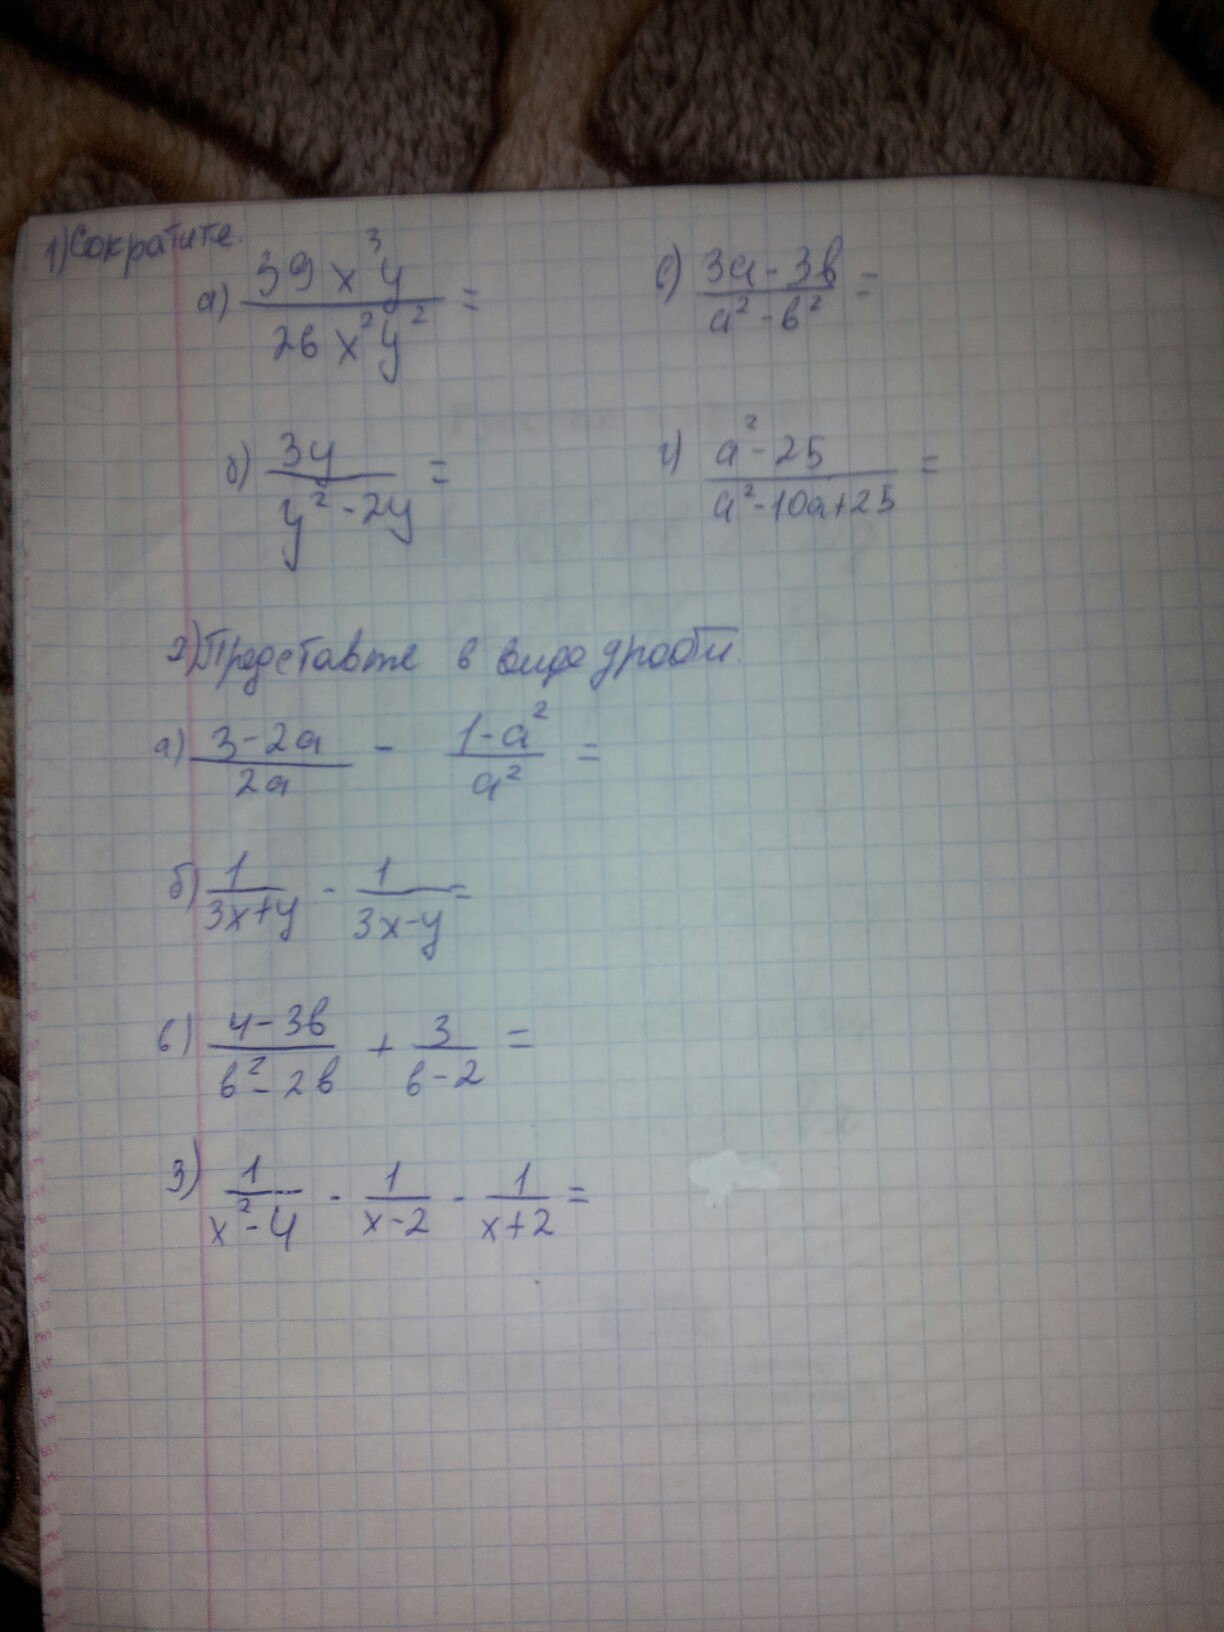 1) Сократите.
а) 39x³y / 26x²y² =
в) 3a - 3b / a² - b² =
б) 3y / y² - 2y =
г) a² - 25 / a² - 10a + 25 =
2) Представте в виде дроби.
а) 3 - 2a / 2a - 1 - a² / a² =
б) 1 / 3x + y - 1 / 3x - y =
в) 4 - 3b / b² - 2b + 3 / b - 2 =
3) 1 / x² - 4 - 1 / x - 2 - 1 / x + 2 =